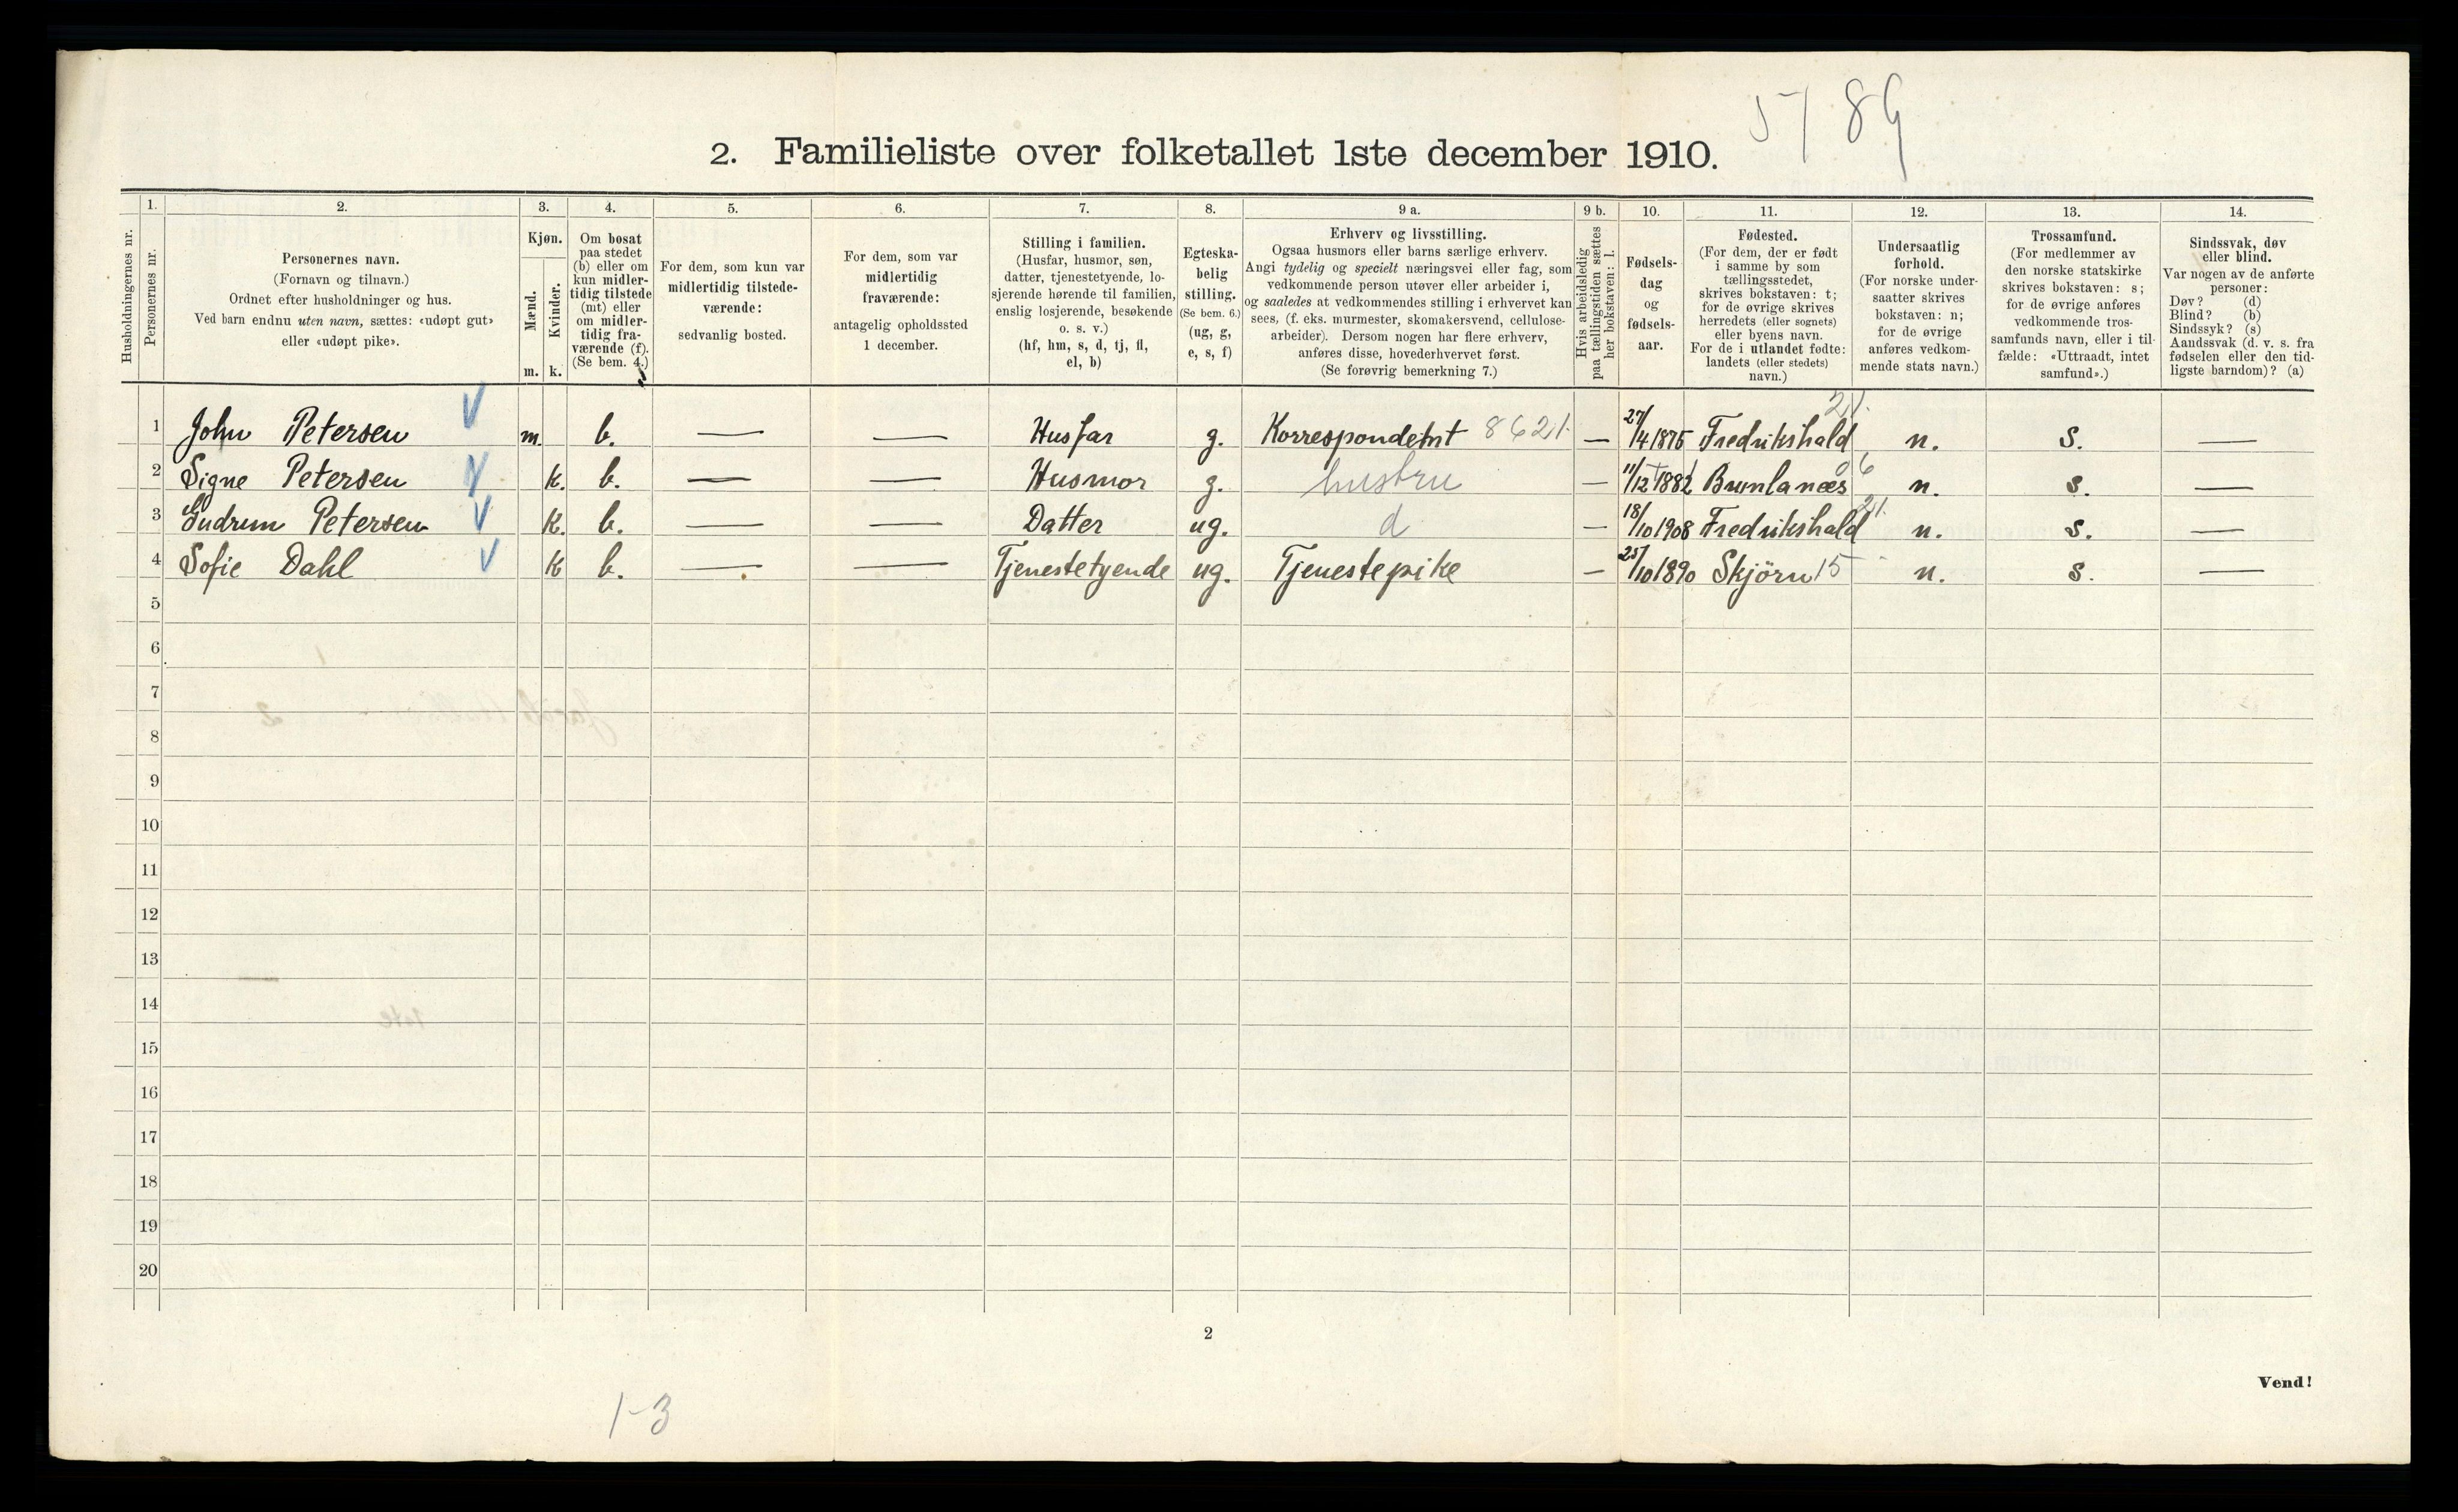 57 89
2. Familieliste over folketallet 1ste december 1910.
Husholdningernes nr.
1.
Personernes nr.
2.
Personernes navn.
(Fornavn og tilnavn.)
Ordnet efter husholdninger og hus.
Ved barn endnu uten navn, sættes: «udøpt gut»
eller «udøpt pike».
3.
Kjøn.
Mænd.
Kvinder.
m. k.
4.
Om bosat
paa stedet
(b) eller om
kun midler-
tidig tilstede
(mt) eller
om midler-
tidig fra-
værende (f).
(Se bem. 4.)
5.
For dem, som kun var
midlertidig tilstede-
værende:
sedvanlig bosted.
6.
For dem, som var
midlertidig
fraværende:
antagelig opholdssted
1 december.
7.
Stilling i familien.
(Husfar, husmor, søn,
datter, tjenestetyende, lo-
sjerende hørende til familien,
enslig losjerende, besøkende
o. s. v.)
(hf, hm, s, d, tj, fl,
el, b)
8.
Egteska-
belig
stilling.
(Se bem. 6.)
(ug, g,
e, s, f)
9 a.
Erhverv og livsstilling.
Ogsaa husmors eller barns særlige erhverv.
Angi tydelig og specielt næringsvei eller fag, som
vedkommende person utøver eller arbeider i,
og saaledes at vedkommendes stilling i erhvervet kan
sees, (f. eks. murmester, skomakersvend, cellulose-
arbeider). Dersom nogen har flere erhverv,
anføres disse, hovederhvervet først.
(Se forøvrig bemerkning 7.)
9 b.
Hvis arbeidsledig
paa tællingstiden sættes
her bokstaven: l.
10.
Fødsels-
dag
og
fødsels-
aar.
11.
Fødested.
(For dem, der er født
i samme by som
tællingsstedet,
skrives bokstaven: t;
for de øvrige skrives
herredets (eller sognets)
eller byens navn.
For de i utlandet fødte:
landets (eller stedets)
navn.)
12.
Undersaatlig
forhold.
(For norske under-
saatter skrives
bokstaven: n;
for de øvrige
anføres vedkom-
mende stats navn.)
13.
Trossamfund.
(For medlemmer av
den norske statskirke
skrives bokstaven: s;
for de øvrige anføres
vedkommende tros-
samfunds navn, eller i til-
fælde: «Uttraadt, intet
samfund».)
14.
Sindssvak, døv
eller blind.
Var nogen av de anførte
personer:
Døv? (d)
Blind? (b)
Sindssyk? (s)
Aandssvak (d. v. s. fra
fødselen eller den tid-
ligste barndom)? (a)
1 John Petersen m. b. — — Husfar g. Korrespondent 8621. — 27/4 1875 Fredrikshald 21. n. s. —
2 Signe Petersen k. b. — — Husmor g. hustru — 11/12 1882 Brunlanæs 6 n. s. —
3 Gudrun Petersen k. b. — — Datter ug. d — 18/10 1908 Fredrikshald 21. n. s. —
4 Sofie Dahl k b. — — Tjenestetyende ug. Tjenestepike — 25/10 1890 Skjörn 15 n. s. —
5
6
7
8
9
10
11
12
13
14
15
16
17
18
19
20
2
Vend!
1-3